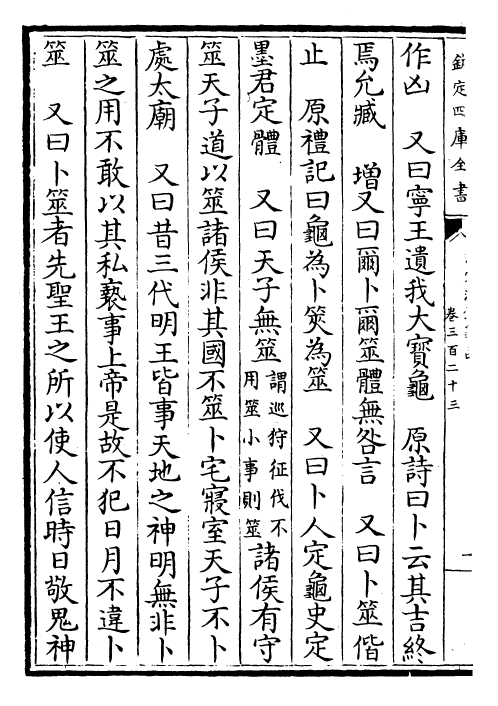 欽定四庫全書
卷三百二十三
作凶　又曰寧王遺我大寶龜　原詩曰卜云其吉終
焉允臧　增又曰爾卜爾筮體無咎言　又曰卜筮偕
止　原禮記曰龜為卜筴為筮　又曰卜人定龜史定
墨君定體　又曰天子無筮謂巡狩征伐不用筮小事則筮諸侯有守
筮天子道以筮諸侯非其國不筮卜宅寢室天子不卜
處太廟　又曰昔三代明王皆事天地之神明無非卜
筮之用不敢以其私褻事上帝是故不犯日月不違卜
筮　又曰卜筮者先聖王之所以使人信時日敬鬼神